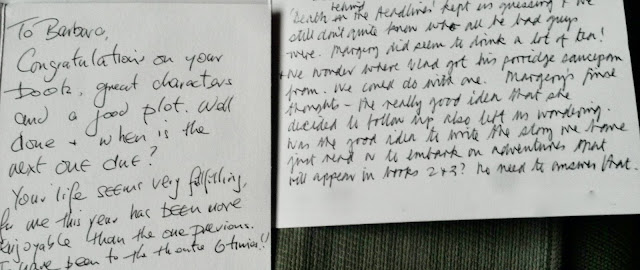 To Barbara,
Congratulations on your
book, great characters
and a good plot. Well
done + when is the
next one due?
Your life seems very fulfilling,
for me this year has been more
enjoyable than the one previous.
I have been to the theatre 6 times!!
behind
'Death in the Headlines' kept us guessing + we
still don't quite know who all the bad guys
were. Margery did seem to drink a lot of tea!
+ We wonder where Vlad got his porridge saucepan
from. We could do with one. Margery's final
thought – the really good idea that she
decided to follow up also left us wondering.
Was the good idea to write the story we have
just read or to embark on adventures that
will appear in books 2+3? No need to answer that.